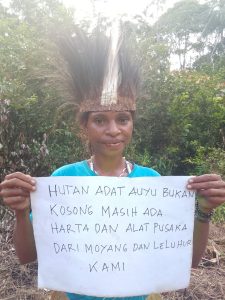 HUTAN ADAT AUYU BUKAN
KOSONG MASIH ADA
HARTA DAN ALAT PUSAKA
DARI MOYANG DAN LELUHUR
KAMI